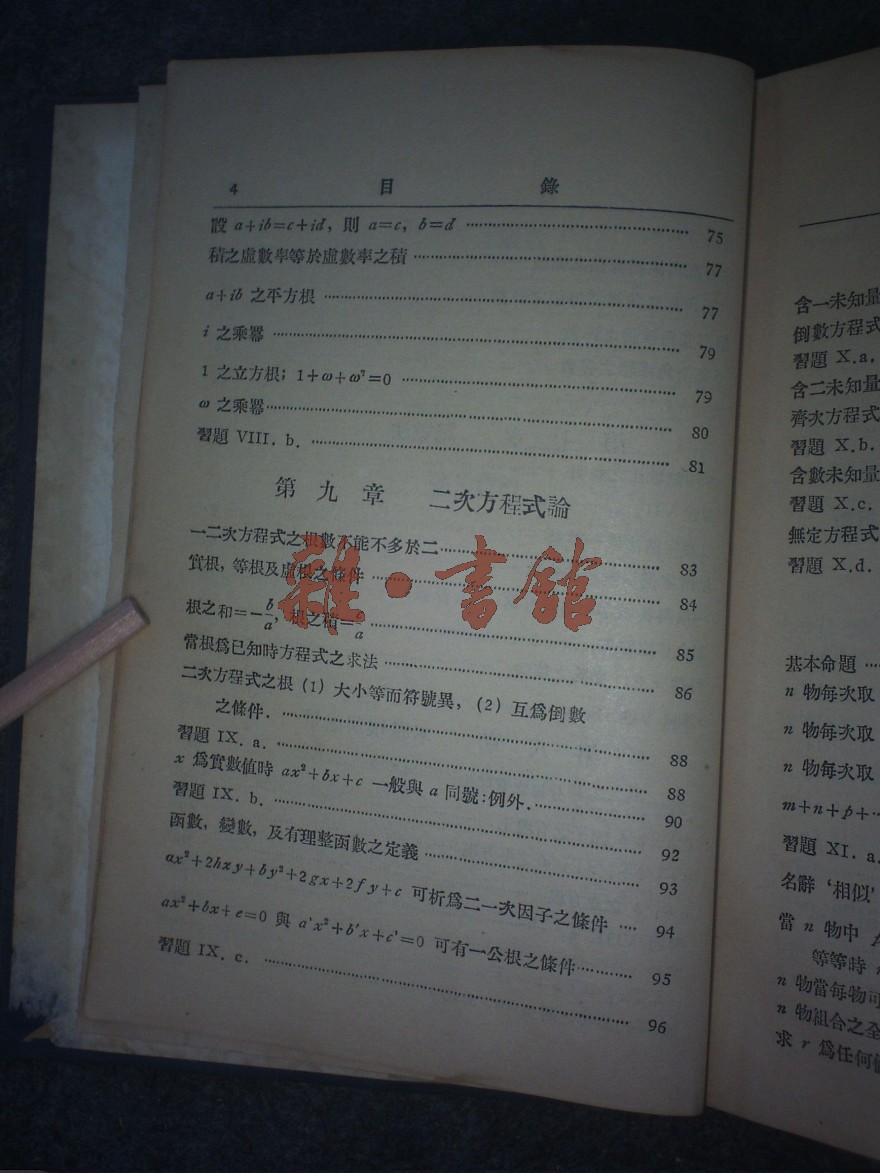 4 目 錄
設 a+ib=c+id, 則 a=c, b=d …… 75
積之虛數率等於虛數率之積 …… 77
a+ib 之平方根 …… 77
i 之乘羃 …… 79
1 之立方根; 1+ω+ω²=0 …… 79
ω 之乘羃 …… 80
習題 VIII. b. …… 81
第九章 二次方程式論
一二次方程式之根數不能不多於二 …… 83
實根, 等根及虛根之條件 …… 84
根之和=-b/a, 根之積=c/a …… 85
當根爲已知時方程式之求法 …… 86
二次方程式之根 (1) 大小等而符號異, (2) 互爲倒數
之條件. …… 88
習題 IX. a. …… 88
x 爲實數值時 ax²+bx+c 一般與 a 同號:例外. …… 90
習題 IX. b. …… 92
函數, 變數, 及有理整函數之定義 …… 93
ax²+2hxy+by²+2gx+2fy+c 可析爲二一次因子之條件 …… 94
ax²+bx+c=0 與 a'x²+b'x+c'=0 可有一公根之條件 …… 95
習題 IX. c. …… 96
雜·書館
含一未知量
倒數方程式
習題 X.a.
含二未知量
齊次方程式
習題 X.b.
含數未知量
習題 X.c.
無定方程式
習題 X.d.
基本命題 ……
n 物每次取
n 物每次取
n 物每次取
m+n+p+…
習題 XI. a.
名辭 '相似'
當 n 物中 p
等等時
n 物當每物可
n 物組合之全
求 r 爲任何